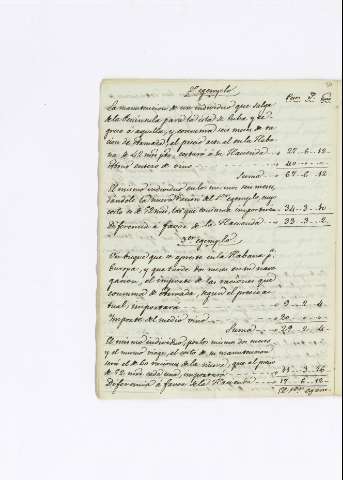 2º egemplo
Pesos. Rs.
La manutencion de un individuo que salga
de la Peninsula para la isla de Cuba y
à aquella, y consuma seis meses de ra
cion de Armada, al precio actual en la Haba
na de costará à la Hacienda 27 " 6 " 12
Idem de vino 40
Suma 67 " 6 " 12
El mismo individuo en los mismos seis meses
dandole la nueva racion del 1er egemplo, cuyo
costo es de 72 mrs, los que consuma importaran 34 " 3 " 10
Diferencia à favor de la Hacienda 33 " 3 " 2
3er egemplo
Un buque que se apreste en la Habana pª
Europa, y que tarde dos meses en su nave
gacion, el importe de las raciones que
consuma de Armada, segun el precio ac
tual importará 9 " 2 " 4
Importe del medio vino 20
Suma 29 " 2 " 4
El mismo individuo, por los mismos dos meses
y el mismo viage, el costo de su manutencion
será el de las raciones de la nueva, que al precio
de 72 mrs cada una, importará 11 " 3 " 26
Diferencia à favor de la Hacienda 17 " 6 " 12